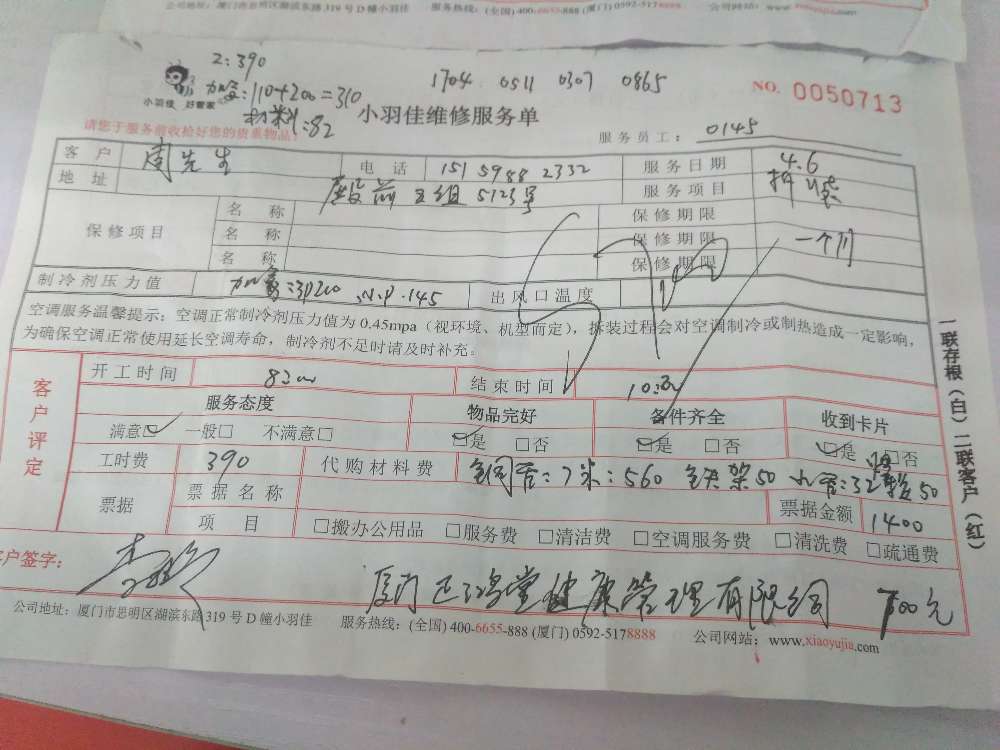 公司地址：厦门市思明区湖滨东路319号D幢小羽佳 服务热线：(全国) 400-6655-888 (厦门) 0592-5178888 公司网站：www.xiaoyujia.com
工:390
加氟:110+200=310
材料:82
1704 0511 0307 0865
小羽佳 好管家
NO. 0050713
小羽佳维修服务单
请您于服务前收拾好您的贵重物品!
服务员工: 0145
客户 周先生 电话 151 5988 2332 服务日期 4.6
地址 殿前五组5123号 服务项目 拆装
保修项目 名称 保修期限
名称 保修期限 一个月
名称 保修期限
制冷剂压力值 加氟:3P200 出风口温度
空调服务温馨提示：空调正常制冷剂压力值为 0.45mpa（视环境、机型而定），拆装过程会对空调制冷或制热造成一定影响，
为确保空调正常使用延长空调寿命，制冷剂不足时请及时补充。
客户评定
开工时间 结束时间
服务态度 物品完好 备件齐全 收到卡片
满意☑ 一般□ 不满意□ ☑是 □否 ☑是 □否 ☑是 □否
工时费 390 代购材料费 铜管:7米:560 铁架50 水管:32 50
票据 票据名称 票据金额 1400
项目 □搬办公用品 □服务费 □清洁费 □空调服务费 □清洗费 □疏通费
客户签字:
厦门正鸿堂健康管理有限公司 700元
公司地址：厦门市思明区湖滨东路319号D幢小羽佳 服务热线：(全国) 400-6655-888 (厦门) 0592-5178888 公司网站：www.xiaoyujia.com
一联存根（白）二联客户（红）